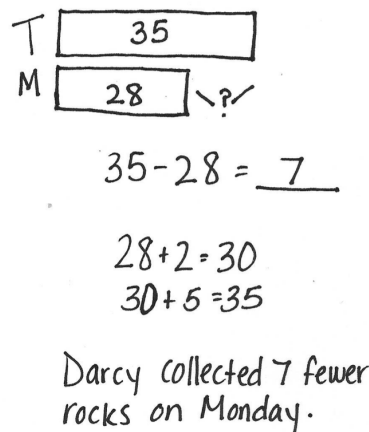 T 35
M 28 ?
35-28 = 7
28+2=30
30+5=35
Darcy collected 7 fewer
rocks on Monday.